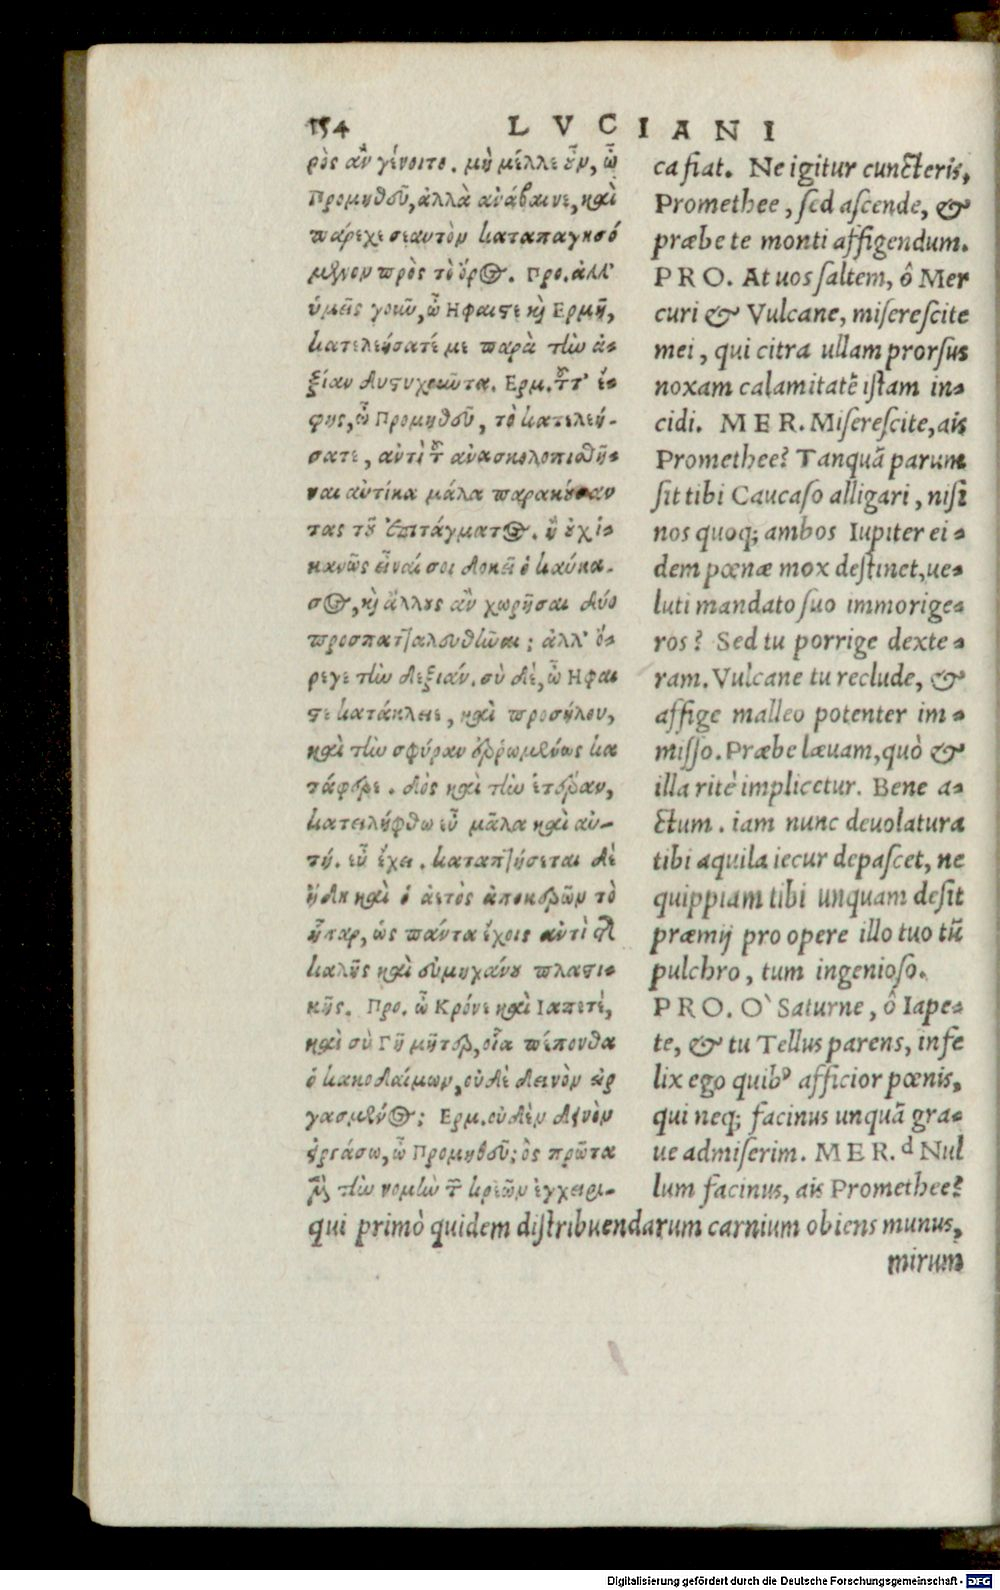 154 LVCIANI
ρὸς ἂν γένοιτο. μὴ μέλλε οὖν, ὦ
Προμηθεῦ, ἀλλὰ ἀνάβαινε, καὶ
πάρεχε σεαυτὸν καταπαγησό
μενον πρὸς τὸ ὄρος. Προ. ἀλλ'
ὑμεῖς γοιῶ, ὦ Ηφαιστε κὶ Ερμῆ,
κατελεήσατέ με παρὰ τὴν ἀ-
ξίαν δυστυχοῦντα. Ερμ. τοῦτ' ἔ-
φης, ὦ Προμηθεῦ, τὸ κατελεή-
σατε, ἀντὶ τοῦ ἀνασκολοπισθῆ-
ναι αὐτίκα μάλα παρακούσαν
τας τοῦ ἐπιτάγματος. ἢ οὐχ ἱ-
κανῶς εἶναί σοι δοκεῖ ὁ καύκα-
σος, κὶ ἄλλους ἂν χωρῆσαι δύο
προσπατταλευθῶαι; ἀλλ' ὄ-
ρεγε τὴν δεξιάν. σὺ δὲ, ὦ Ηφαι
στε κατάκλειε, καὶ προσήλου,
καὶ τὴν σφύραν ἐρρωμένως κα
τάφερε. δὸς καὶ τὴν ἑτέραν,
κατειλήφθω εὖ μᾶλα καὶ αὐ-
τή. εὖ ἔχει. καταπτήσεται δὲ
ἤδη καὶ ὁ ἀετὸς ἀποκερῶν τὸ
ἧπαρ, ὡς πάντα ἔχοις ἀντὶ τῆς
καλῆς καὶ εὐμηχάνου πλαστι-
κῆς. Προ. ὦ Κρόνε καὶ Ιαπετὲ,
καὶ σὺ Γῆ μῆτερ, οἷα πέπονθα
ὁ κακοδαίμων, οὐδὲ δεινὸν εἰρ
γασμένος; Ερμ. οὐδὲν δεινὸν
εἰργάσω, ὦ Προμηθεῦ; ὃς πρῶτα
μὲν τὴν νομὴν τῶν κρεῶν ἐγχειρι-
ca fiat. Ne igitur cuncteris,
Promethee, sed ascende, &
præbe te monti affigendum.
PRO. At uos saltem, ô Mer
curi & Vulcane, miserescite
mei, qui citra ullam prorsus
noxam calamitatẽ istam in-
cidi. MER. Miserescite, ais
Promethee? Tanquã parum
sit tibi Caucaso alligari, nisi
nos quoq; ambos Iupiter ei-
dem pœnæ mox destinet, ue-
luti mandato suo immorige-
ros? Sed tu porrige dexte-
ram. Vulcane tu reclude, &
affige malleo potenter im-
misso. Præbe læuam, quò &
illa ritè implicetur. Bene a-
ctum. iam nunc deuolatura
tibi aquila iecur depascet, ne
quippiam tibi unquam desit
præmij pro opere illo tuo tũ
pulchro, tum ingenioso.
PRO. O` Saturne, ô Iape-
te, & tu Tellus parens, infe
lix ego quibꝰ afficior pœnis,
qui neq; facinus unquã gra-
ue admiserim. MER. d Nul
lum facinus, ais Promethee?
qui primò quidem distribuendarum carnium obiens munus,
mirum
Digitalisierung gefördert durch die Deutsche Forschungsgemeinschaft - DFG